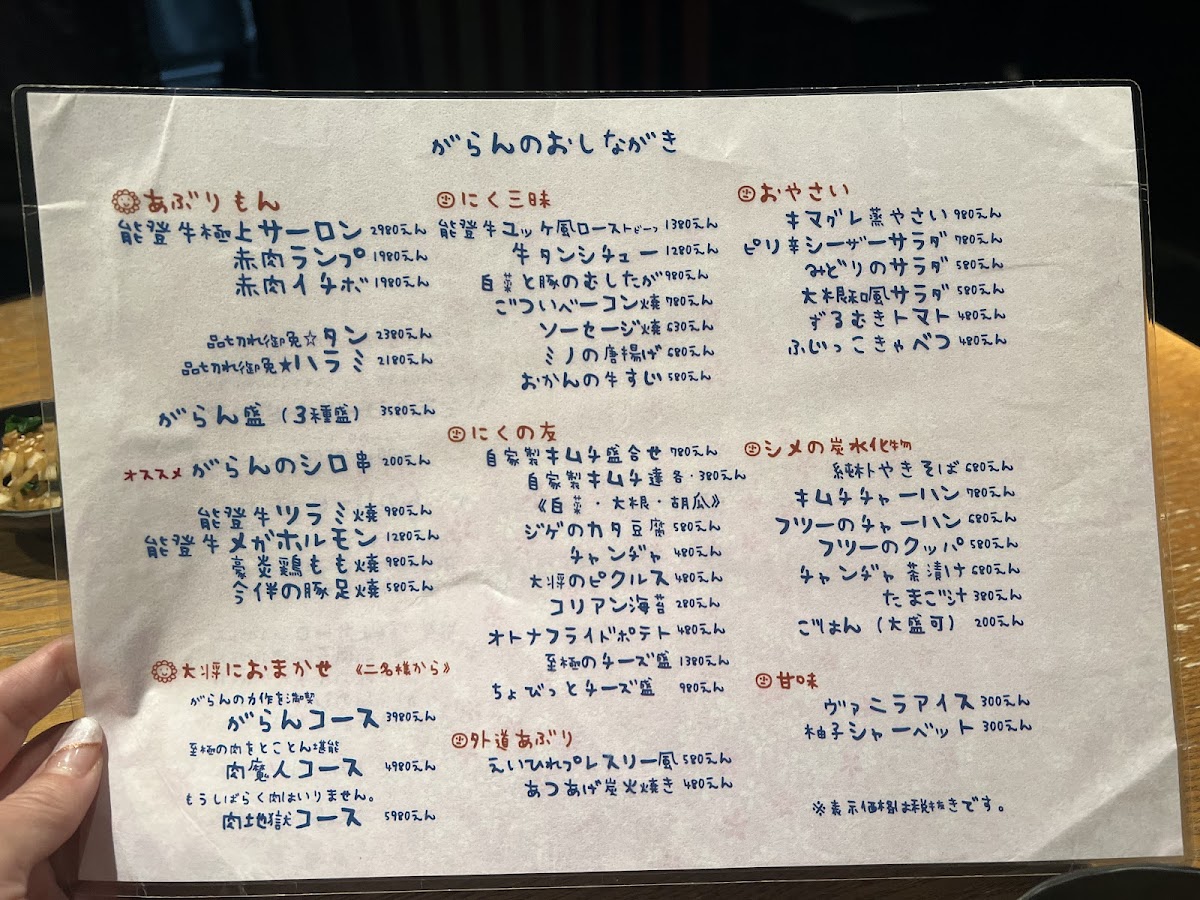 がらんのおしながき
あぶりもん
能登牛極上サーロン 2980えん
赤肉ランプ 1980えん
赤肉イチボ 1980えん
品切れ御免☆タン 2380えん
品切れ御免★ハラミ 2180えん
がらん盛（3種盛） 3580えん
オススメ がらんのシロ串 200えん
能登牛ツラミ焼 980えん
能登牛メガホルモン 1280えん
豪炎鶏もも焼 980えん
今伴の豚足焼 580えん
大将におまかせ 《二名様から》
がらんの力作を御喫
がらんコース 3980えん
至極の肉をとことん堪能
肉魔人コース 4980えん
もうしばらく肉はいりません。
肉地獄コース 5980えん
にく三昧
能登牛ユッケ風ローストビーフ 1380えん
牛タンシチュー 1280えん
白菜と豚のむしたが 980えん
ごついベーコン焼 780えん
ソーセージ焼 630えん
ミノの唐揚げ 680えん
おかんの牛すじ 580えん
にくの友
自家製キムチ盛合せ 780えん
自家製キムチ達 各・380えん
《白菜・大根・胡瓜》
ジゲのカタ豆腐 580えん
チャンヂャ 480えん
大将のピクルス 480えん
コリアン海苔 280えん
オトナフライドポテト 480えん
至極のチーズ盛 1380えん
ちょびっとチーズ盛 980えん
外道あぶり
えいひれプレスリー風 580えん
あつあげ炭火焼き 480えん
おやさい
キマグレ蒸やさい 980えん
ピリ辛シーザーサラダ 780えん
みどりのサラダ 580えん
大根和風サラダ 580えん
ずるむきトマト 480えん
ふじっこきゃべつ 480えん
シメの炭水化物
純朴やきそば 680えん
キムチチャーハン 780えん
フツーのチャーハン 680えん
フツーのクッパ 580えん
チャンヂャ茶漬け 680えん
たまご汁 380えん
ごはん（大盛可） 200えん
甘味
ヴァニラアイス 300えん
柚子シャーベット 300えん
※表示価格は税抜きです。